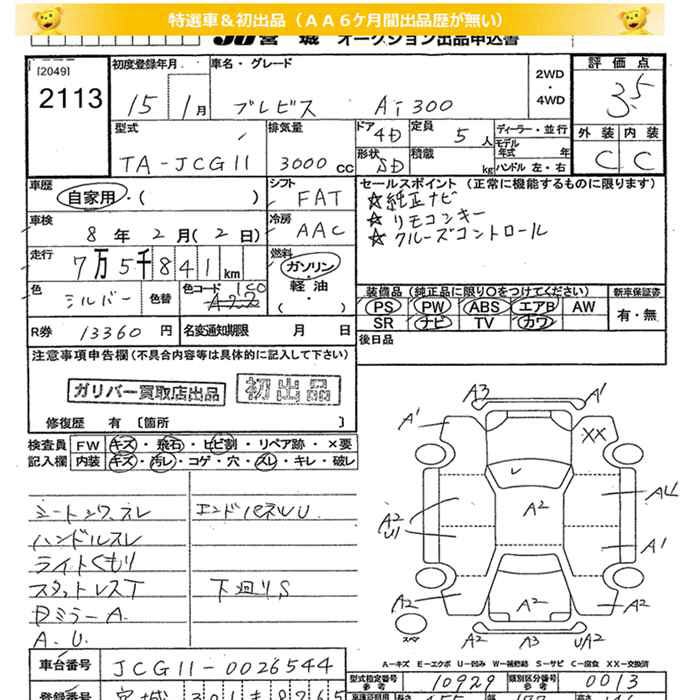 特選車&初出品(AA6ケ月間出品歴が無い)
JU宮城 オークション出品申込書
[2049]
2113
初度登録年月
15年1月
車名・グレード
ブレビス Ai300
2WD・4WD
評価点
3.5
外装 内装
C C
型式
TA-JCG11
排気量
3000CC
ドア
4D
形状
SD
定員
5人
積載
kg
ディーラー・並行
モデル年式 年
ハンドル 左・右
車歴
自家用・( )
シフト
FAT
車検
8年2月(2日)
冷房
AAC
走行
7万5千841km
燃料
ガソリン・軽油・( )
色
シルバー
色替
色コード
1C0
R券
13360円
名変通知期限 月 日
セールスポイント(正常に機能するものに限ります)
☆純正ナビ
☆リモコンキー
☆クルーズコントロール
装備品(純正品に限り〇をつけてください)
PS PW ABS エアB AW
SR ナビ TV カワ
新車保証書
有・無
後日品
注意事項申告欄(不具合内容等は具体的に記入して下さい)
ガリバー買取店出品
初出品
修復歴 有 〔箇所 〕
検査員記入欄
FW キズ・飛石・ヒビ割・リペア跡・×要
内装 キズ・汚レ・コゲ・穴・スレ・キレ・破レ
シートシワ、スレ
ハンドルスレ
ライトくもり
スタットレスT
Dミラー A.
A.U.
エンドパネルU
下廻りS
A3 A1
A1 XX
A2 A2 U1 A4
A1
A2 A2 A2
スペア A2 A3 UA2
A-キズ E-エクボ U-凹み W-補修跡 S-サビ C-腐食 XX-交換済
車台番号
JCG11-0026544
型式指定番号 参考
10929
類別区分番号 参考
0013
登録番号
宮城 301